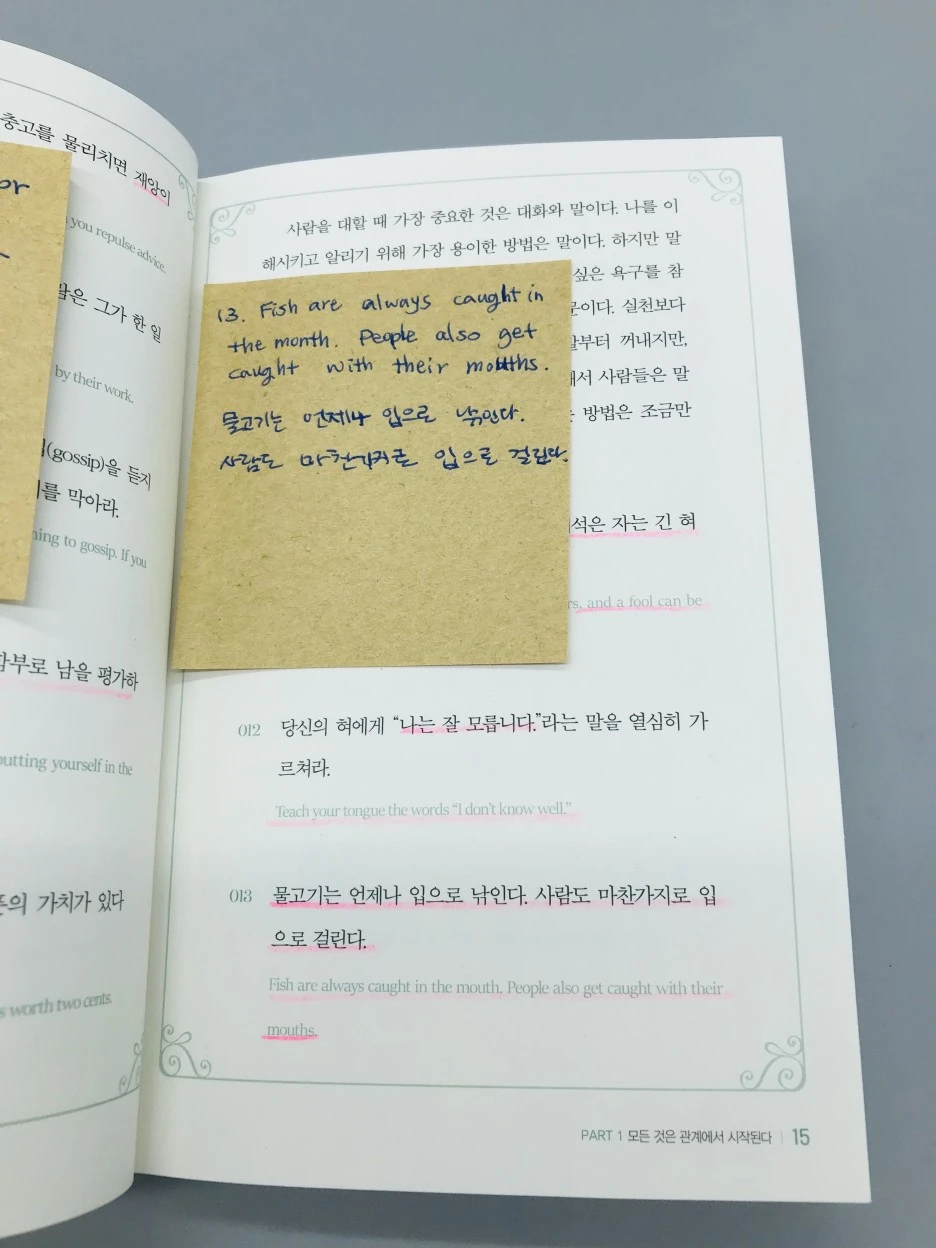 충고를 물리치면 재앙이
you repulse advice.
은 그가 한 일
by their work.
(gossip)을 듣지
를 막아라.
ning to gossip. If you
함부로 남을 평가하
putting yourself in the
의 가치가 있다
s worth two cents.
or
사람을 대할 때 가장 중요한 것은 대화와 말이다. 나를 이
해시키고 알리기 위해 가장 용이한 방법은 말이다. 하지만 말
싶은 욕구를 참
문이다. 실천보다
부터 꺼내지만,
서 사람들은 말
방법은 조금만
13. Fish are always caught in
the month. People also get
caught with their mouths.
물고기는 언제나 입으로 낚인다.
사람도 마찬가지로 입으로 걸린다.
석은 자는 긴 혀
rs, and a fool can be
012 당신의 혀에게 “나는 잘 모릅니다.”라는 말을 열심히 가
르쳐라.
Teach your tongue the words “I don't know well.”
013 물고기는 언제나 입으로 낚인다. 사람도 마찬가지로 입
으로 걸린다.
Fish are always caught in the mouth. People also get caught with their
mouths.
PART 1 모든 것은 관계에서 시작된다 | 15